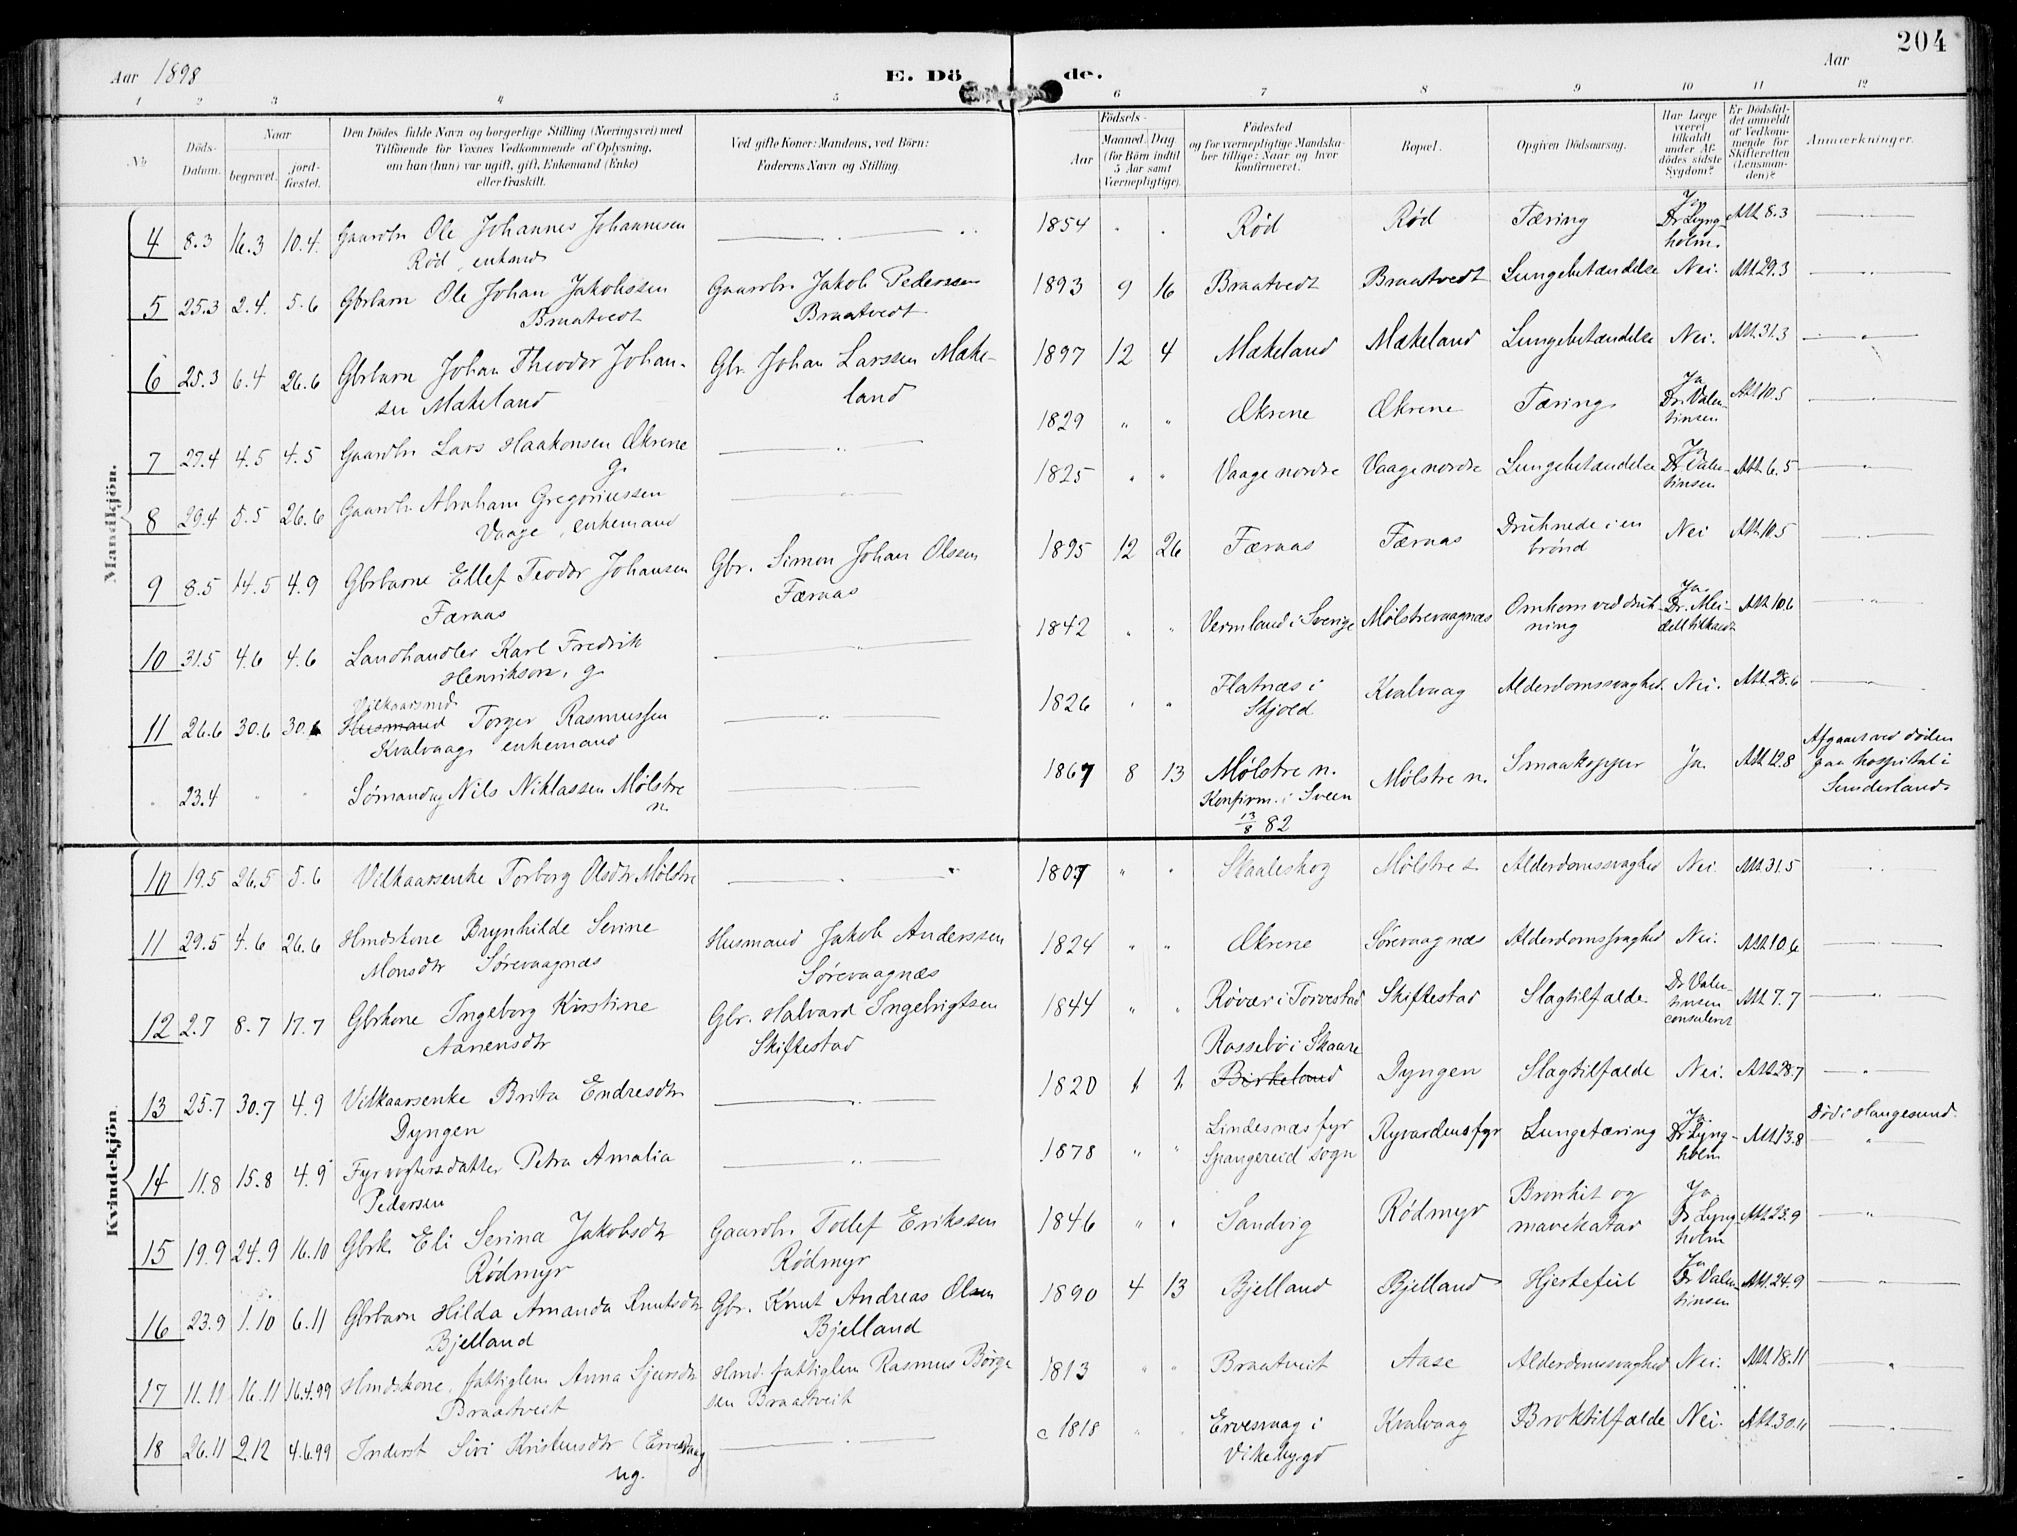 204
Aar 1898
E. Dö de.
Aar
1 2 3 4 5 6 7 8 9 10 11 12
No
Döds-
Datum.
Naar
begravet.
jord-
fæstet.
Den Dödes fulde Navn og borgerlige Stilling (Næringsvei) med
Tilföiende for Voxnes Vedkommende af Oplysning,
om han (hun) var ugift, gift, Enkemand (Enke)
eller fraskilt.
Ved gifte Koner: Mandens, ved Börn:
Faderens Navn og Stilling.
Födsels-
Aar
Maaned. Dag
(for Börn indtil
5 Aar samt
Værnepligtige).
Födested
og for værnepligtige Mandska-
ber tillige: Naar og hvor
konfirmeret.
Bopæl.
Opgiven Dödsaarsag.
Har Læge
været
tilkaldt
under Af-
dödes sidste
Sygdom?
Er Dödsfal-
det anmeldt
af Vedkom-
mende for
Skifteretten
(Lensman-
den)?
Anmærkninger.
Mandkjön.
4 8.3 16.3 10.4. Gaardbr Ole Johannes Johannesen
Rød, enkemd
1854 " " Rød Rød Tæring Ja Dr Lyng-
holm. Att 8.3
5 25.3 2.4. 5.6 Gbrbarn Ole Johan Jakobssen
Braatvedt
Gaardbr. Jakob Pederssen
Braatvedt
1893 9 16 Braatvedt Braatvedt Lungebetændelse Nei. Att 29.3
6 25.3 6.4 26.6 Gbrbarn Johan Theodor Johan-
sen Mækeland
Gbr. Johan Larssen Mæke-
land
1897 12 4 Mækeland Mækeland Lungebetændelse Nei. Att 31.3
7 27.4 4.5 4.5 Gaardbr Lars Haakonsen Økrene
g.
1829 " " Økrene Økrene Tæring Ja Dr Valen-
tinsen Att 10.5
8 29.4 5.5 26.6 Gaardbr. Abraham Gregoriussen
Vaage, enkemand
1825 " " Vaage nordre Vaage nordre Lungebetændelse Ja Dr Valen-
tinsen Att 6.5
9 8.5 14.5 4.9 Gbrbarne Ellef Teodor Johansen
Færaas
Gbr. Simon Johan Olssen
Færaas
1895 12 26 Færaas Færaas Druknede i en
brønd Nei Att 10.5
10 31.5 4.6 4.6 Landhandler Karl Fredrik
Henrikson, g
1842 " " Vermland i Sverige Mølstrevaagnæs Omkom ved druk-
ning Ja. Dr. Mei-
dell tilkaldt Att 10.6
11 26.6 30.6 30.6 Vilkaarsmd
Husmand Torger Rasmussen
Kvalvaag enkemand
1826 " " Flatnæs i
Skjold Kvalvaag Alderdomssvaghed. Nei. Att 28.6
" 23.4 " " Sømand ug Nils Niklassen Mølstre
n.
1867 8 13 Mølstre n.
Konfirm. i Sveen
13/8 82 Mølstre n. Smaakopper Ja. Att 12.8 Afgaaet ved døden
paa hospital i
Sunderland
Kvindekjön.
10 19.5 26.5 5.6 Vilkaarsenke Torborg Olsdtr Mølstre
1807 " " Skaaleskog Mølstre s. Alderdomssvaghed Nei. Att 31.5
11 29.5 4.6 26.6 Hmdskone Brynhilde Serine
Monsdtr Sørevaagnæs
Husmand Jakob Anderssen
Sørevaagnæs
1824 " " Økrene Sørevaagnæs Alderdomssvaghed Nei. Att 10.6
12 2.7 8.7 17.7 Gbrkone Ingeborg Kirstine
Aanensdtr
Gbr. Halvard Ingebrigtsen
Skiftestad
1844 " " Røvær i Torvestad Skiftestad Slagtilfælde Dr Valen-
tinsen
consulent Att 7.7
13 25.7 30.7 4.9 Vilkaarsenke Brita Endresdtr
Dyngen
1820 1 1. Rossebø i Skaare
Birkeland Dyngen Slagtilfælde Nei. Att 28.7
14 11.8 15.8 4.9 Fyrvogtersdatter Petra Amalia
Pedersen
1878 " " Lindesnæs fyr
Spangereid sogn Ryvardens fyr Lungetæring Ja. Dr Lyng-
holm Att 13.8 Død i Haugesund.
15 19.9 24.9 16.10 Gbrk. Eli Serina Jakobsdtr
Rødmyr
Gaardbr. Tollef Erikssen
Rødmyr
1846 " " Sandvig Rødmyr Bronkit og
mavekatar Ja Dr Lyng-
holm Att 23.9
16 23.9 1.10 6.11 Gbrbarn Hilda Amanda Knutsdtr
Bjelland
Gbr. Knut Andreas Olsen
Bjelland
1890 4 13 Bjelland Bjelland Hjertefeil Ja Dr Valen-
tinsen Att. 24.9
17 11.11 16.11 16.4.99 Hmdskone, fattiglem Anna Sjursdtr
Braatveit
Hmd. fattiglem Rasmus Børge
sen Braatveit
1813 " " Braatveit Aase Alderdomssvaghed Nei. Att 18.11
18 26.11 2.12 4.6.99 Inderst Siri Kristensdtr (Ervesvaag
ug.
c 1818 " " Ervesvaag i
Vikebygd Kvalvaag Broktilfælde Nei. Att 30.11